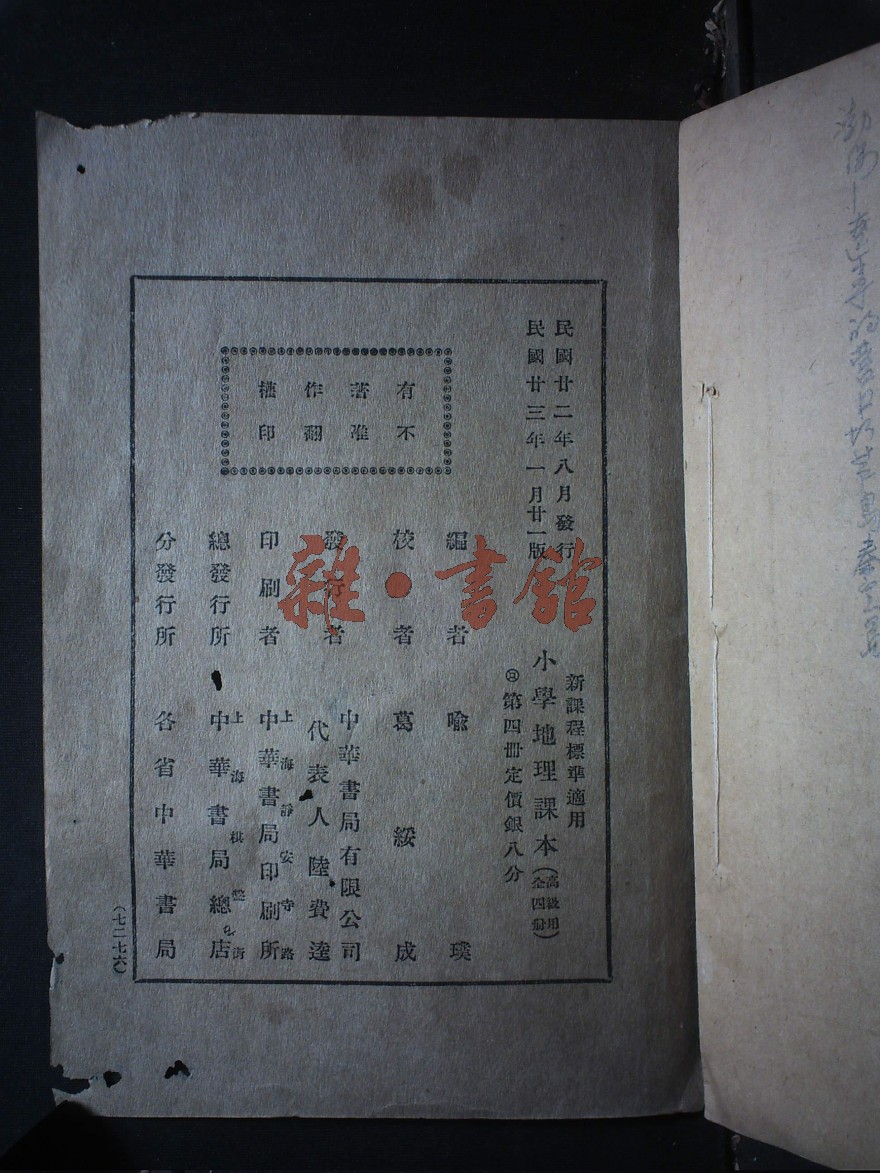 民國廿二年八月發行
民國廿三年一月廿一版
新課程標準適用
小學地理課本(高級用全四册)
第四册定價銀八分
有著作權
不准翻印
編者 喩璞
校者 葛綏成
發行者 中華書局有限公司
代表人 陸費逵
印刷者 上海靜安寺路
中華書局印刷所
總發行所 上海棋盤街
中華書局總店
分發行所 各省中華書局
(七二七六)
雜·書舘